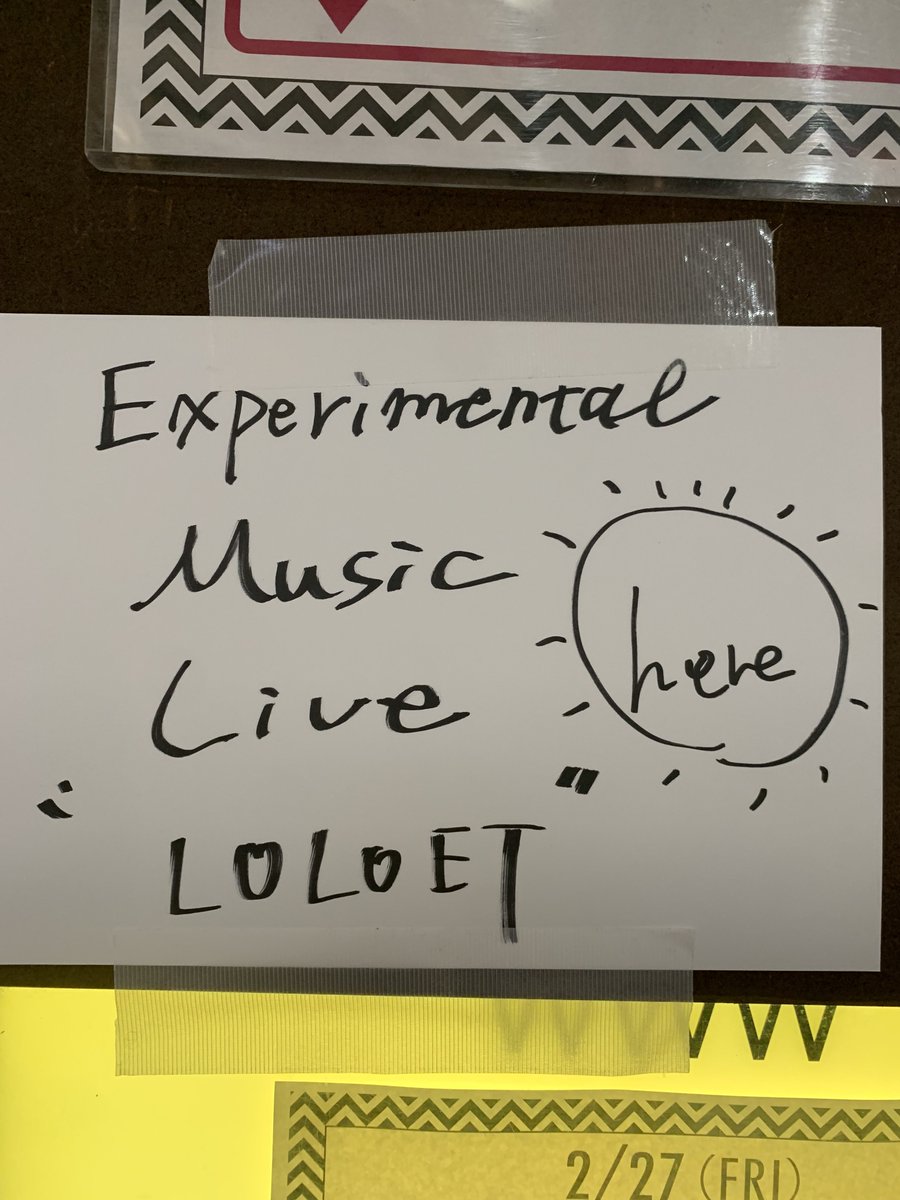 Experimental
Music
Live
here
"LOLOET"
WWW
2/27 (FRI)